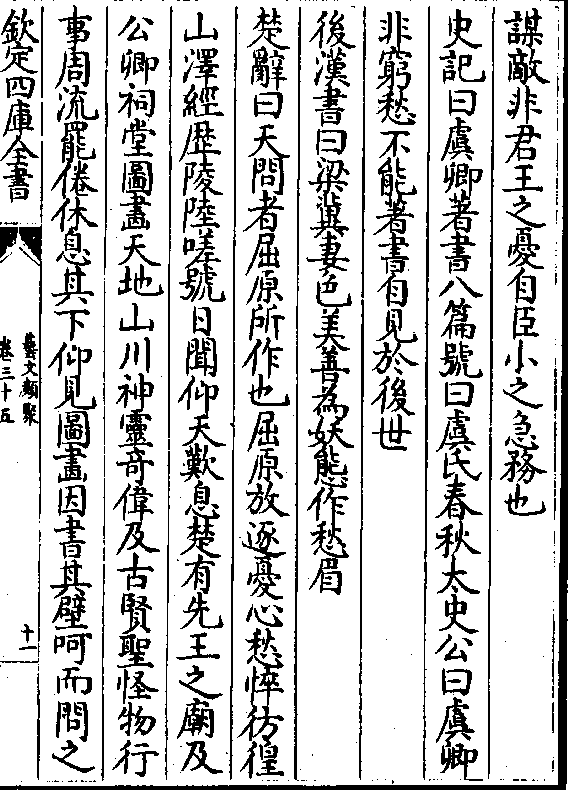 謀敵非君王之憂自臣小之急務也
史記曰虞卿著書八篇號曰虞氏春秋太史公曰虞卿
非窮愁不能著書自見於後世
後漢書曰梁冀妻色美善為妖態作愁眉
楚辭曰天問者屈原所作也屈原放逐憂心愁悴彷徨
山澤經歴陵陸嗟號日聞仰天歎息楚有先王之廟及
公卿祠堂圖畫天地山川神靈奇偉及古賢聖怪物行
事周流罷倦休息其下仰見圖畫因書其壁呵而問之
欽定四庫全書
藝文類聚
卷三十五
十一